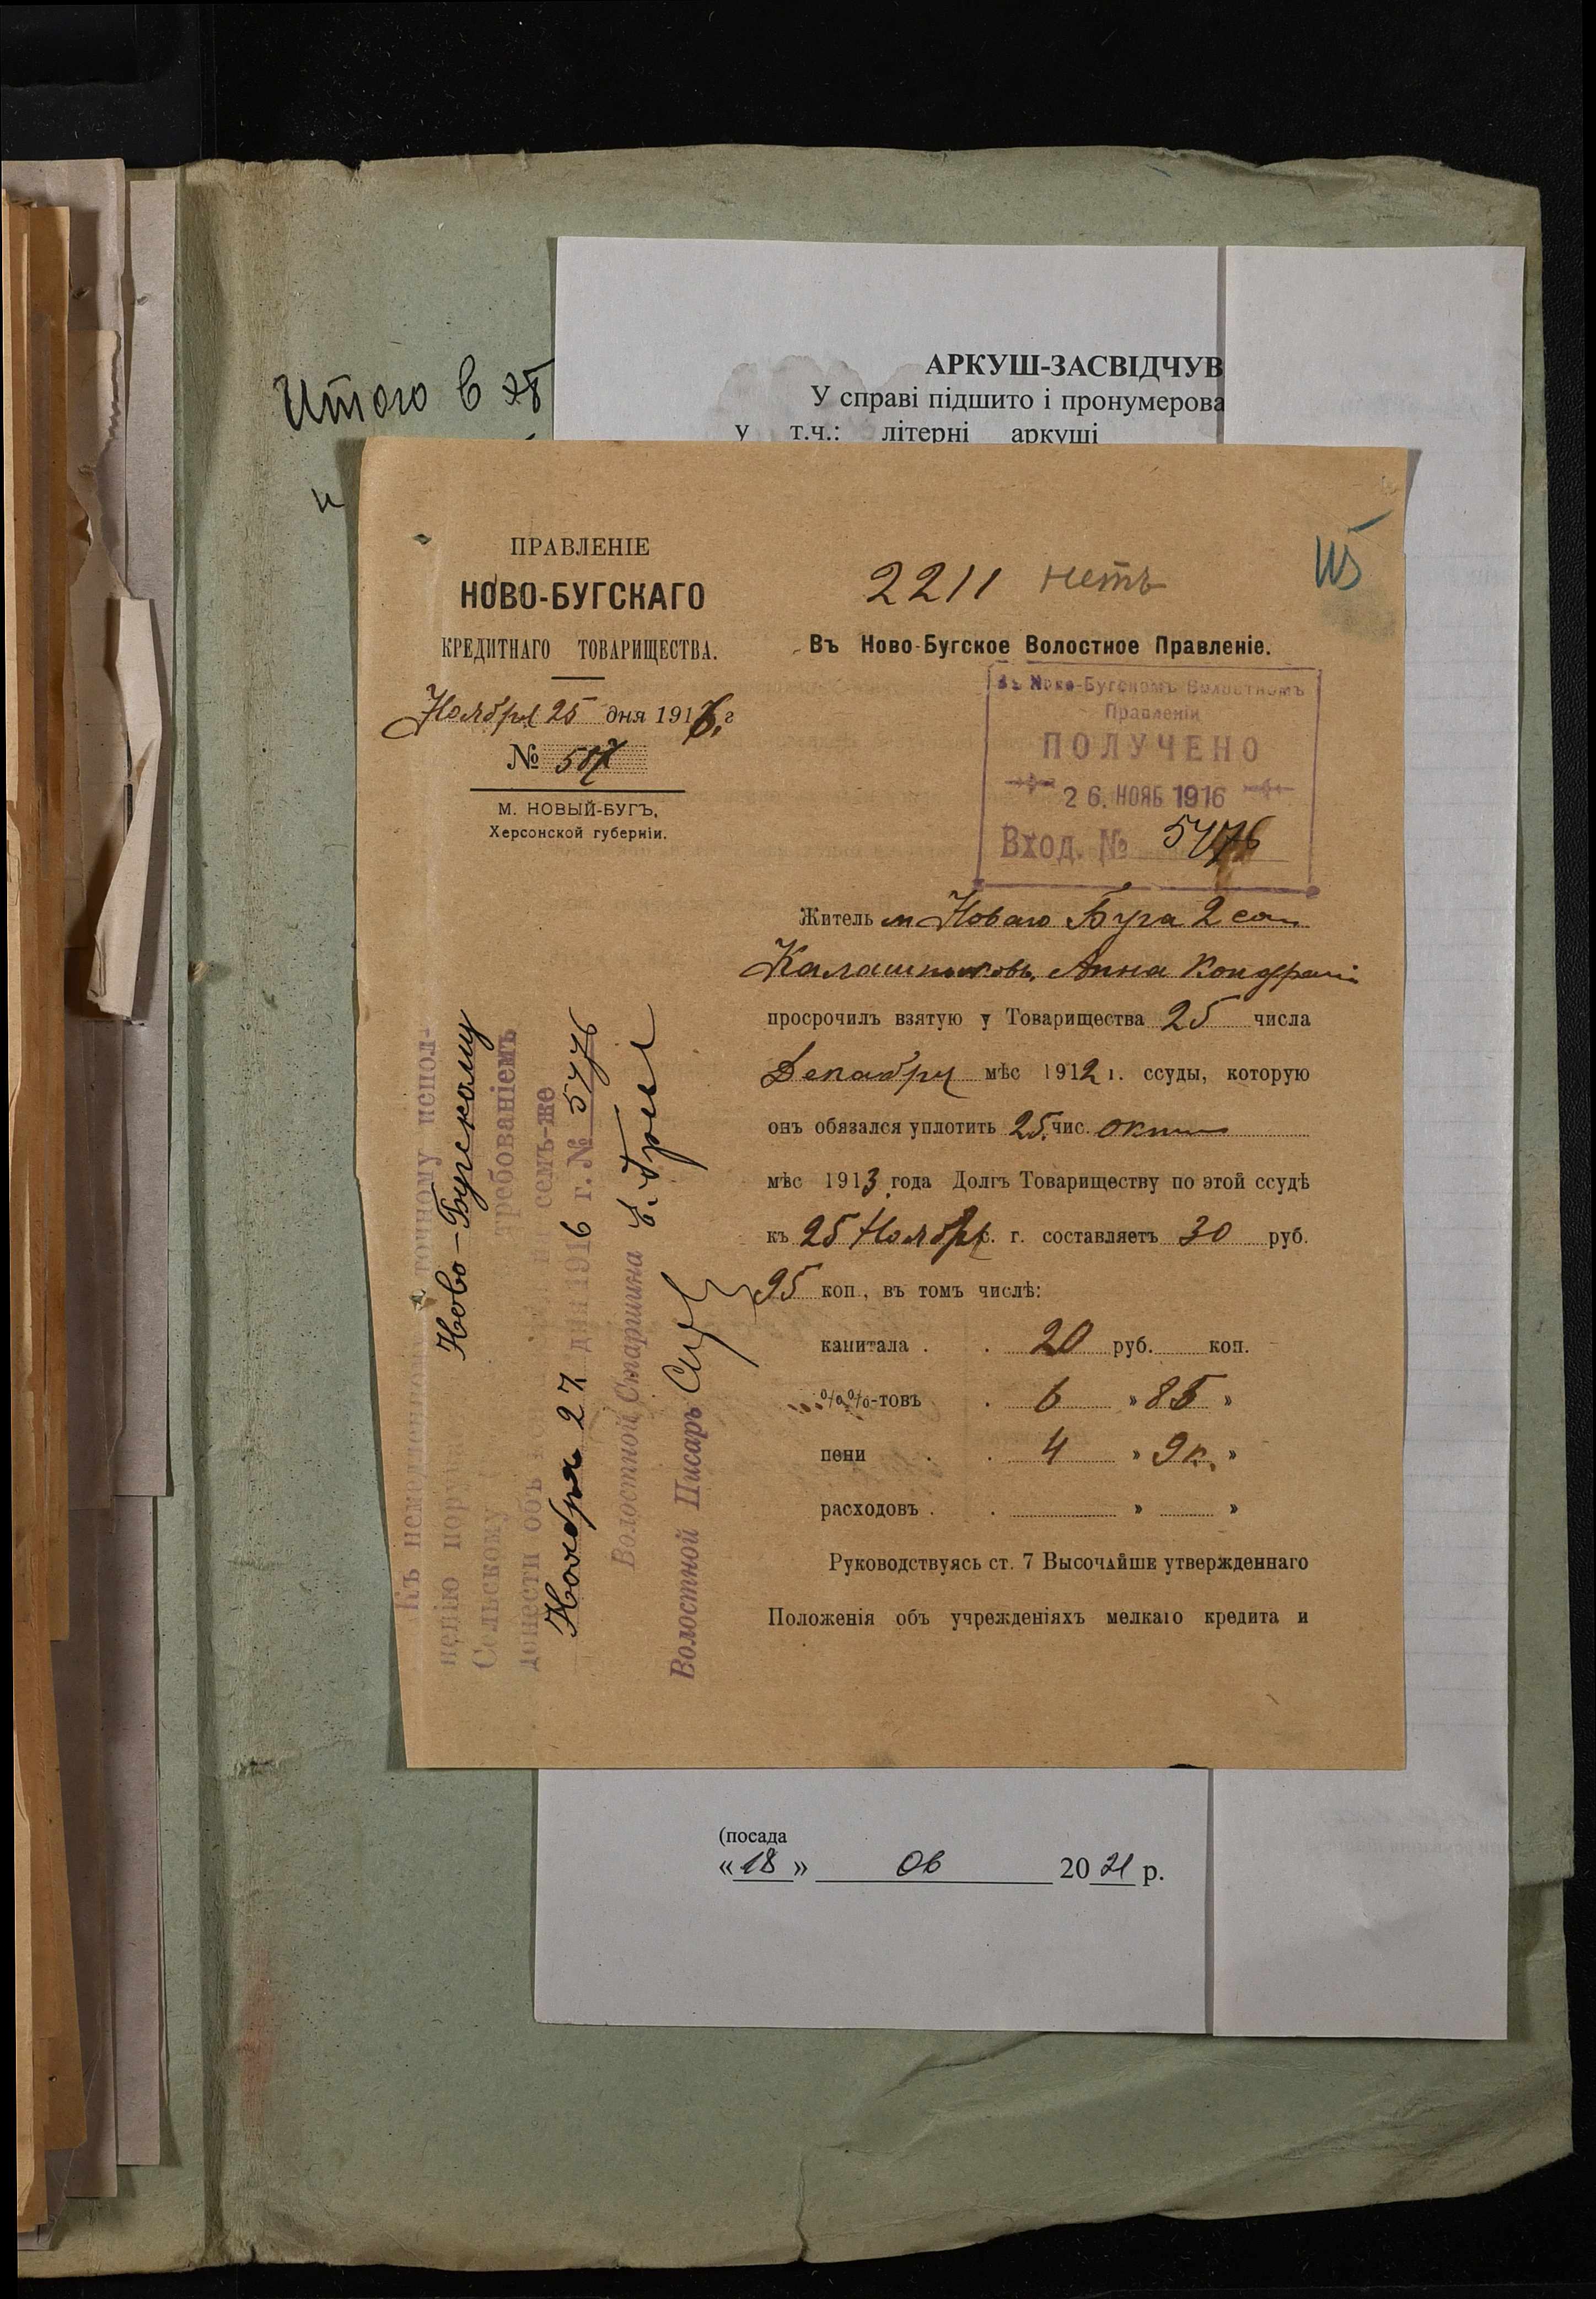 Итого в
АРКУШ-ЗАСВІДЧУВ
У справі підшито і пронумерова
у т.ч.: літерні аркуші
и
ПРАВЛЕНІЕ
НОВО-БУГСКАГО
КРЕДИТНАГО ТОВАРИЩЕСТВА.
Ноября 25 дня 1916 г
№
М. НОВЫЙ-БУГЪ,
Херсонской губерніи.
2211 нетъ
Въ Ново-Бугское Волостное Правленіе.
Въ Ново-Бугскомъ Волостномъ
Правленіи
ПОЛУЧЕНО
26. НОЯБ 1916
Вход. № 5476
Житель м Новаго Буга 2 
Калашниковъ Анна
просрочилъ взятую у Товарищества 25 числа
Декабря мѣс 1912 г. ссуды, которую
онъ обязался уплотить 25 чис. окт
мѣс 1913 года Долгъ Товариществу по этой ссудѣ
къ 25 Ноября с. г. составляетъ 30 руб.
95 коп., въ томъ числѣ:
капитала . . 20 руб. коп.
%%-товъ . 6 » 85 »
пени . . 4 »
расходовъ . . » »
Руководствуясь ст. 7 Высочайше утвержденнаго
Положенія объ учрежденіяхъ мелкаго кредита и
Къ немедленному точному испол-
ненію
Ново-Бугскому
Сельскому
требованіемъ
донести объ семъ-же
Ноября 27 дня 1916 г. № 5476
Волостной Старшина
Волостной Писарь
(посада
«18» 06 2021 р.